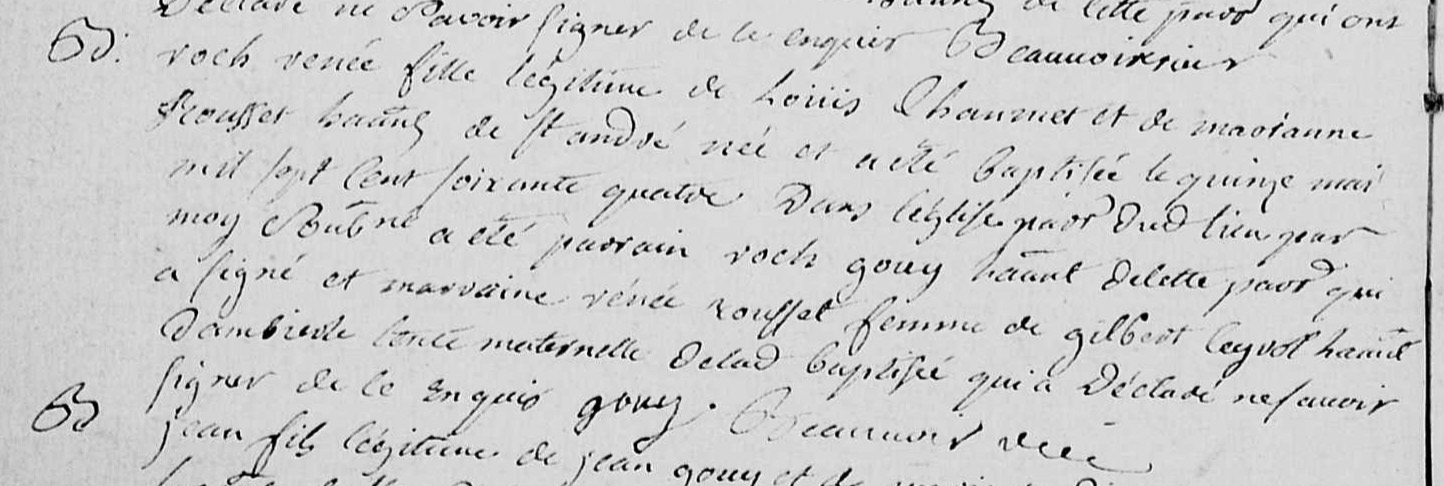 Déclaré ne Sçavoir signer de ce enquis Beauvoir
cette paroî qui ont
Bd. roch renée fille légitime de Loüis Chaumet et de marianne
Rousset habñts de St andré née et a été baptisée le quinze mai
mil sept Cent soixante quatre Dans l'église paroî dud lieu par
moy Soubñé a été parrain roch gouy habñt de cette paroî qui
a signé et marraine rénée rousset femme de gilbert habñt
D'ambierle tante maternelle de lad baptisée qui a Déclaré ne sauoir
signer de ce Enquis gouy. Beauvoir vicé
Bd jean fils légitime de jean gouy et de